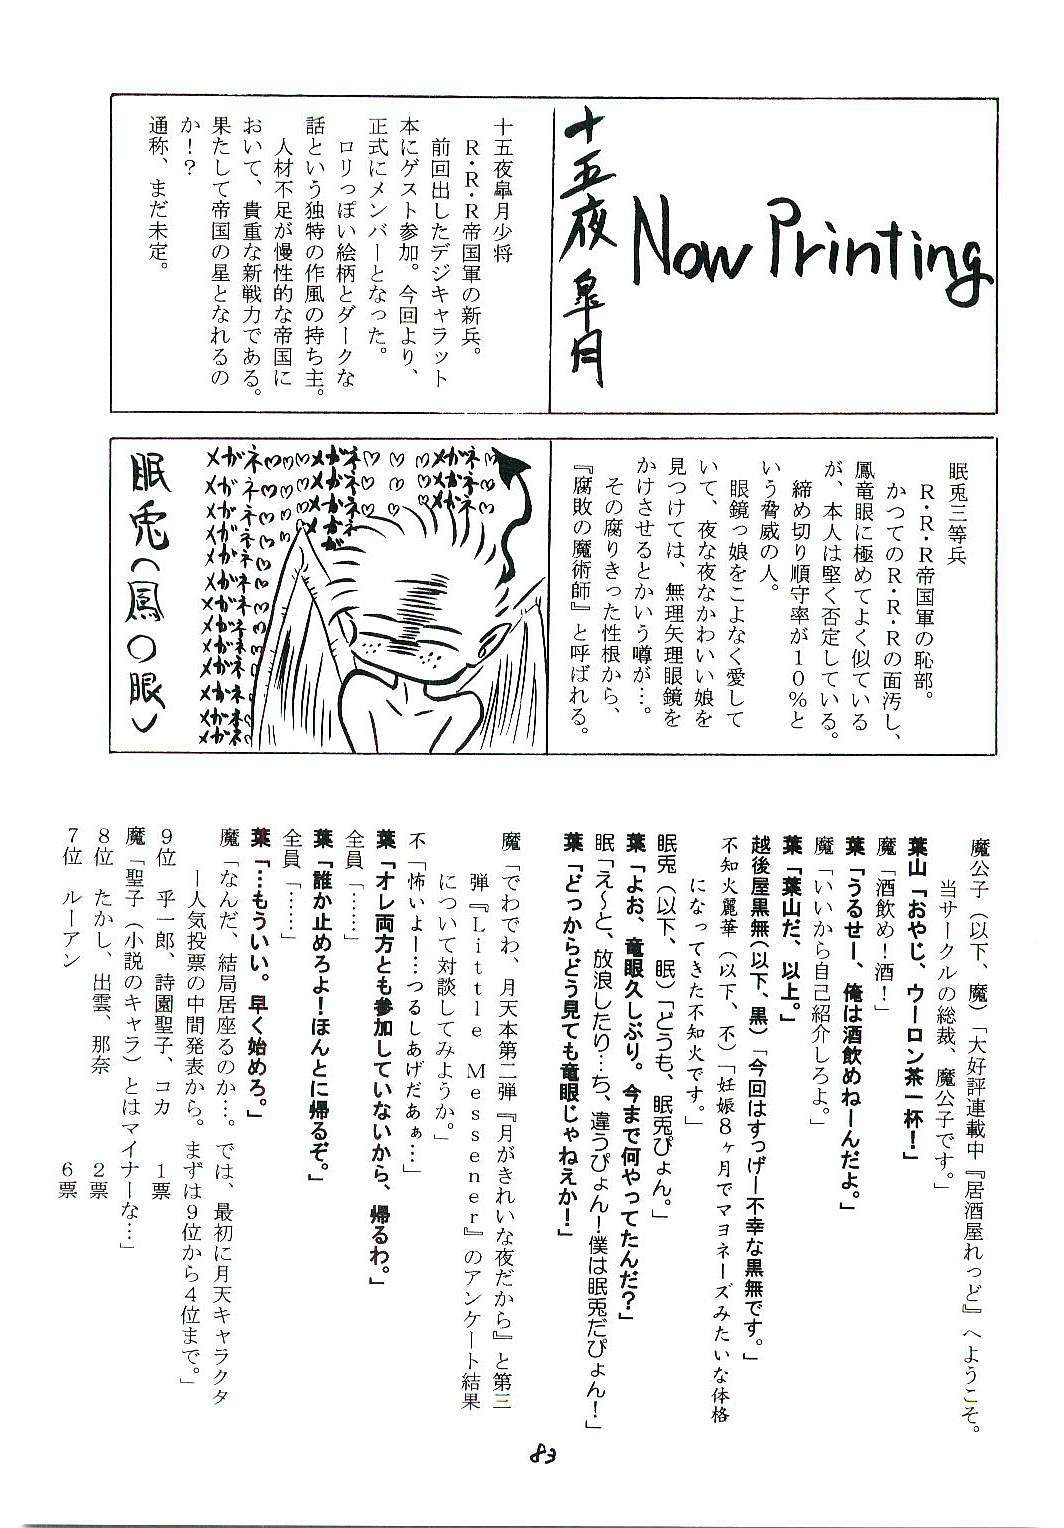 Now Printing
十五夜 皐月
十五夜皐月少将
R・R・R帝国軍の新兵。
前回出したデジキャラット
本にゲスト参加。今回より、
正式にメンバーとなった。
ロリっぽい絵柄とダークな
話という独特の作風の持ち主。
人材不足が慢性的な帝国に
おいて、貴重な新戦力である。
果たして帝国の星となれるの
か!?
通称、まだ未定。
眠兎三等兵
R・R・R帝国軍の恥部。
かつてのR・R・Rの面汚し、
鳳竜眼に極めてよく似ている
が、本人は堅く否定している。
締め切り順守率が10%と
いう脅威の人。
眼鏡っ娘をこよなく愛して
いて、夜な夜なかわいい娘を
見つけては、無理矢理眼鏡を
かけさせるとかいう噂が…。
その腐りきった性根から、
『腐敗の魔術師』と呼ばれる。
メガネ♡メガネ♡メガネ♡
眠兎(鳳○眼)
魔公子(以下、魔)「大好評連載中『居酒屋れっど』へようこそ。
当サークルの総裁、魔公子です。」
葉山「おやじ、ウーロン茶一杯!」
魔「酒飲め!酒!」
葉「うるせー、俺は酒飲めねーんだよ。」
魔「いいから自己紹介しろよ。」
葉「葉山だ、以上。」
越後屋黒無(以下、黒)「今回はすっげー不幸な黒無です。」
不知火麗華(以下、不)「妊娠8ヶ月でマヨネーズみたいな体格
になってきた不知火です。」
眠兎(以下、眠)「どうも、眠兎ぴょん。」
葉「よお、竜眼久しぶり。今まで何やってたんだ?」
眠「え〜と、放浪したり…ち、違うぴょん!僕は眠兎だぴょん!」
葉「どっからどう見ても竜眼じゃねえか!」
魔「でわでわ、月天本第二弾『月がきれいな夜だから』と第三
弾『Little Messener』のアンケート結果
について対談してみようか。」
不「怖いよー…つるしあげだあぁ…」
葉「オレ両方とも参加していないから、帰るわ。」
全員「……」
葉「誰か止めろよ!ほんとに帰るぞ。」
全員「……」
葉「…もういい。早く始めろ。」
魔「なんだ、結局居座るのか…。では、最初に月天キャラクタ
ー人気投票の中間発表から。まずは9位から4位まで。」
9位 乎一郎、詩園聖子、コカ 1票
魔「聖子(小説のキャラ)とはマイナーな…」
8位 たかし、出雲、那奈 2票
7位 ルーアン 6票
83